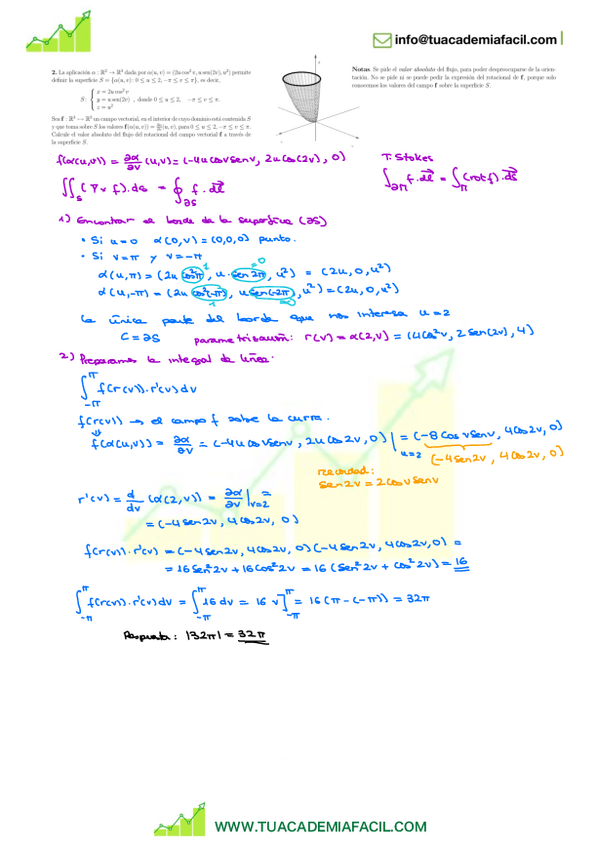 info@tuacademiafacil.com
2. La aplicación α : ℝ² → ℝ³ dada por α(u, v) = (2u cos² v, u sen(2v), u²) permite
definir la superficie S = {α(u, v) : 0 ≤ u ≤ 2, −π ≤ v ≤ π}, es decir,
S : { x = 2u cos² v
y = u sen(2v) , donde 0 ≤ u ≤ 2, −π ≤ v ≤ π.
z = u²
Sea f : ℝ³ → ℝ³ un campo vectorial, en el interior de cuyo dominio está contenida S
y que toma sobre S los valores f(α(u, v)) = ∂α/∂v (u, v), para 0 ≤ u ≤ 2, −π ≤ v ≤ π.
Calcule el valor absoluto del flujo del rotacional del campo vectorial f a través de
la superficie S.
Notas. Se pide el valor absoluto del flujo, para poder despreocuparse de la orien-
tación. No se pide ni se puede pedir la expresión del rotacional de f, porque solo
conocemos los valores del campo f sobre la superficie S.
f(α(u,v)) = ∂α/∂v (u,v) = (-4u cos v sen v, 2u cos(2v), 0)
T. Stokes
∬_S (∇ x f).ds = ∮_∂S f.dl
∫_∂Π f.dl = ∫_Π (rot f).ds
1) Encontrar el borde de la superficie (∂S)
• Si u=0 α(0,v) = (0,0,0) punto.
• Si v=π y v=-π
1 =0
α(u,π) = (2u cos²π, u. sen 2π, u²) = (2u, 0, u²)
α(u,-π) = (2u cos²(-π), u sen(-2π), u²) = (2u, 0, u²)
1 =0
La única parte del borde que nos interesa u=2
C = ∂S parametrización: r(v) = α(2,v) = (4cos²v, 2 sen(2v), 4)
2) Preparamos la integral de línea.
∫_-π^π f(r(v)).r'(v) dv
f(r(v)) → el campo f sobre la curva.
f(α(u,v)) = ∂α/∂v = (-4u cos v sen v, 2u cos 2v, 0) |_u=2 = (-8 cos v sen v, 4 cos 2v, 0)
(-4 sen 2v, 4 cos 2v, 0)
recordad:
sen 2v = 2 cos v sen v
r'(v) = d/dv (α(2,v)) = ∂α/∂v |_v=2 =
= (-4 sen 2v, 4 cos 2v, 0)
f(r(v)).r'(v) = (-4 sen 2v, 4 cos 2v, 0)(-4 sen 2v, 4 cos 2v, 0) =
= 16 sen² 2v + 16 cos² 2v = 16 (sen² 2v + cos² 2v) = 16
∫_-π^π f(r(v)).r'(v) dv = ∫_-π^π 16 dv = 16 v]_-π^π = 16(π-(-π)) = 32π
Respuesta: |32π| = 32π
WWW.TUACADEMIAFACIL.COM